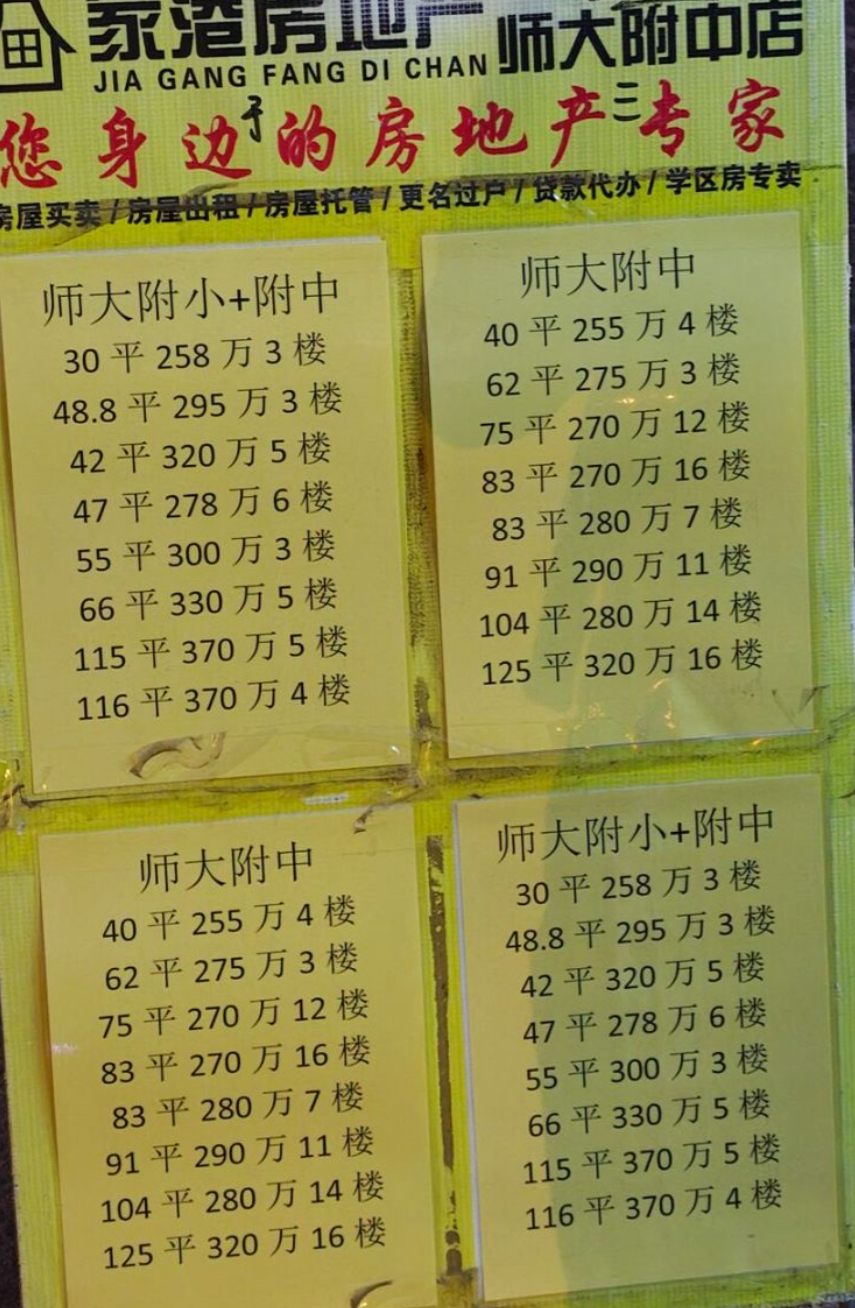 家港房地产 师大附中店
JIA GANG FANG DI CHAN
您身边的房地产专家
房屋买卖/房屋出租/房屋托管/更名过户/贷款代办/学区房专卖
师大附小+附中
30 平 258 万 3 楼
48.8 平 295 万 3 楼
42 平 320 万 5 楼
47 平 278 万 6 楼
55 平 300 万 3 楼
66 平 330 万 5 楼
115 平 370 万 5 楼
116 平 370 万 4 楼
师大附中
40 平 255 万 4 楼
62 平 275 万 3 楼
75 平 270 万 12 楼
83 平 270 万 16 楼
83 平 280 万 7 楼
91 平 290 万 11 楼
104 平 280 万 14 楼
125 平 320 万 16 楼
师大附中
40 平 255 万 4 楼
62 平 275 万 3 楼
75 平 270 万 12 楼
83 平 270 万 16 楼
83 平 280 万 7 楼
91 平 290 万 11 楼
104 平 280 万 14 楼
125 平 320 万 16 楼
师大附小+附中
30 平 258 万 3 楼
48.8 平 295 万 3 楼
42 平 320 万 5 楼
47 平 278 万 6 楼
55 平 300 万 3 楼
66 平 330 万 5 楼
115 平 370 万 5 楼
116 平 370 万 4 楼